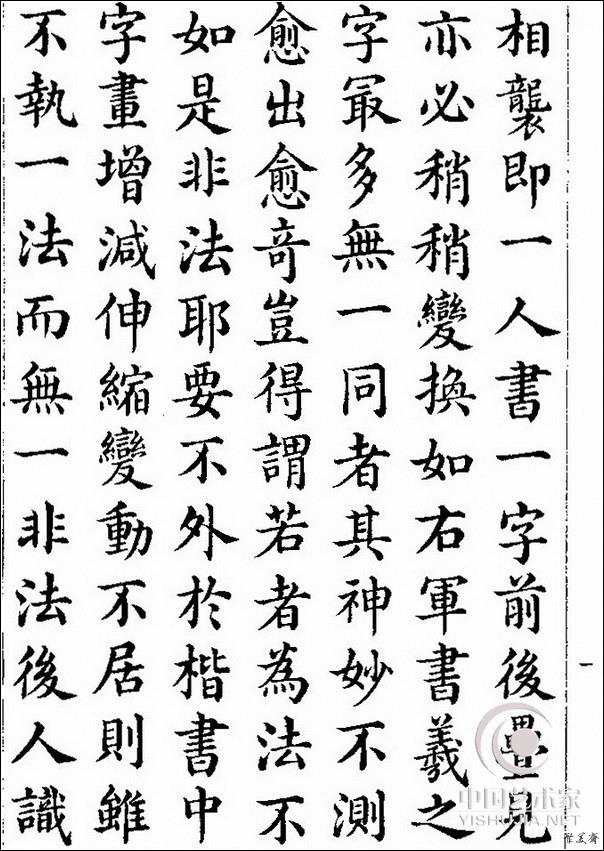 相襲即一人書一字前後疊見
亦必稍稍變換如右軍書羲之
字冣多無一同者其神妙不測
愈出愈竒豈得謂若者為法不
如是非法耶要不外於楷書中
字畫增減伸縮變動不居則雖
不執一法而無一非法後人識
一
中国艺术家
YISHUJIA.NET